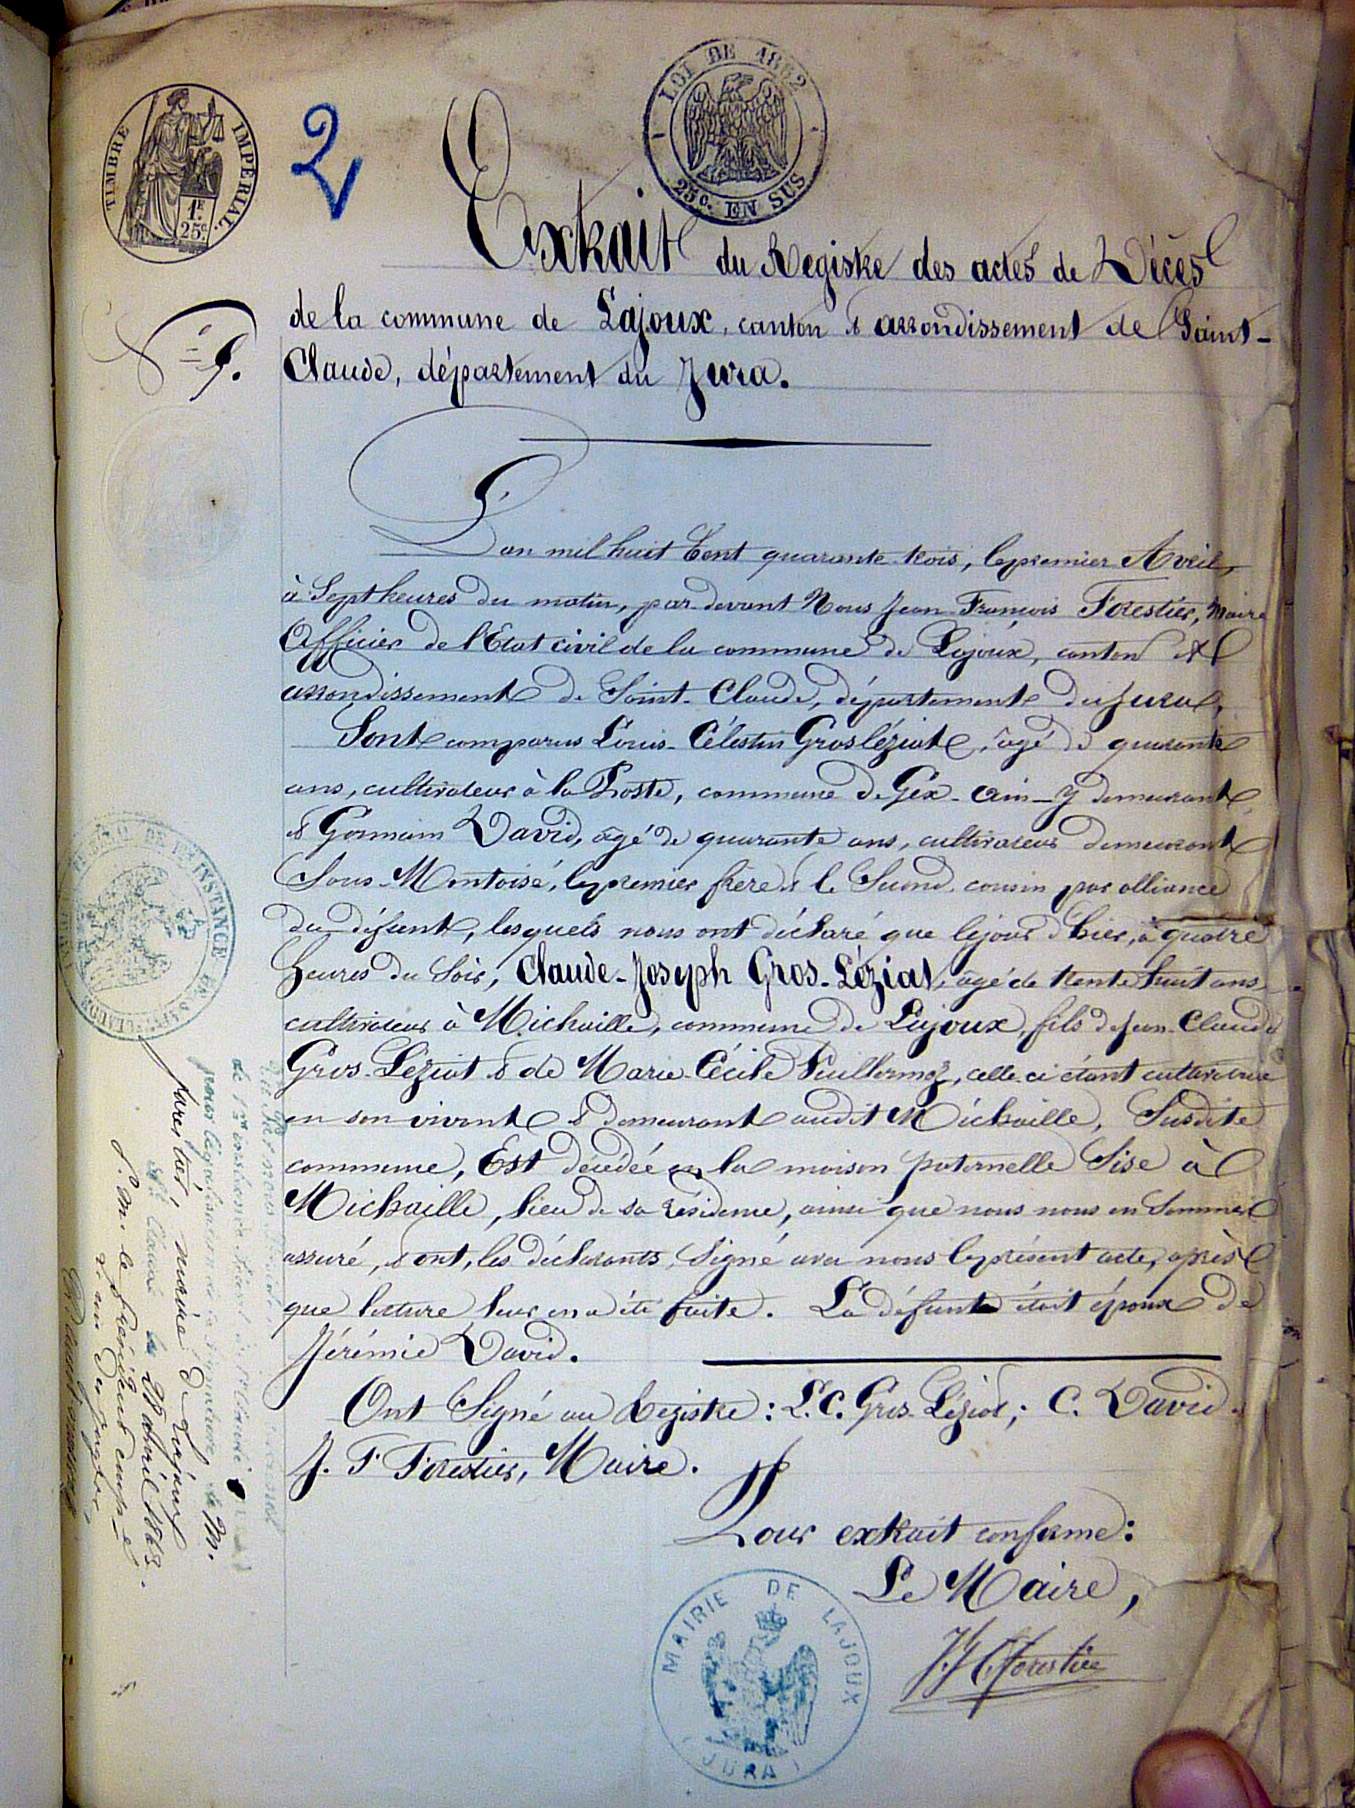 LOI DE 1862
25c. EN SUS
TIMBRE IMPÉRIAL
1F.
25c.
2
Extrait du Registre des actes de Décès
de la commune de Lajoux, canton & arrondissement de Saint-
Claude, département du Jura.
L'an mil huit Cent quarante-trois, le premier Avril,
à Sept heures du matin, par-devant Nous Jean-François Forestier, Maire
Officier de l'Etat civil de la commune de Lajoux, canton et
arrondissement de Saint-Claude, département du Jura,
Sont comparus Louis-Célestin Grosléziat, âgé de quarante
ans, cultivateur à la Poste, commune de Gex-Ain-y demeurant
& Germain David, âgé de quarante ans, cultivateur demeurant
Sous-Montoisé, le premier frère & le Second cousin par alliance
du défunt, lesquels nous ont déclaré que le jour d'hier, à quatre
heures du Soir, Claude-Joseph Gros-Léziat, âgé de trente huit ans
cultivateur à Michaille, commune de Lajoux, fils de Jean-Claude
Gros-Léziat & de Marie-Cécile Vuillermoz, celle-ci étant cultivatrice
en son vivant & demeurant audit Michaille, Susdite
commune, Est décédée en la maison paternelle Sise à
Michaille, lieu de sa résidence, ainsi que nous nous en Sommes
assuré, & ont, les déclarants, Signé avec nous le présent acte, après
que lecture leur en a été faite. Le défunt était époux de
Jérémie David.
Ont Signé au Registre: L.C. Gros-Léziat; C. David.
J. F Forestier, Maire.
Pour extrait conforme:
Le Maire,
J. F. Forestier
MAIRIE DE LAJOUX
(JURA)
DE 1re INSTANCE
SAINT-CLAUDE
de la signature de M.
Forestier, maire de Lajoux
St Claude le 28 avril 1863.
P. M. le Président empê-é